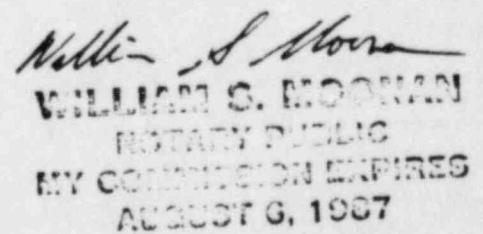 William S Moonan
WILLIAM S. MOONAN
NOTARY PUBLIC
MY COMMISSION EXPIRES
AUGUST 6, 1987